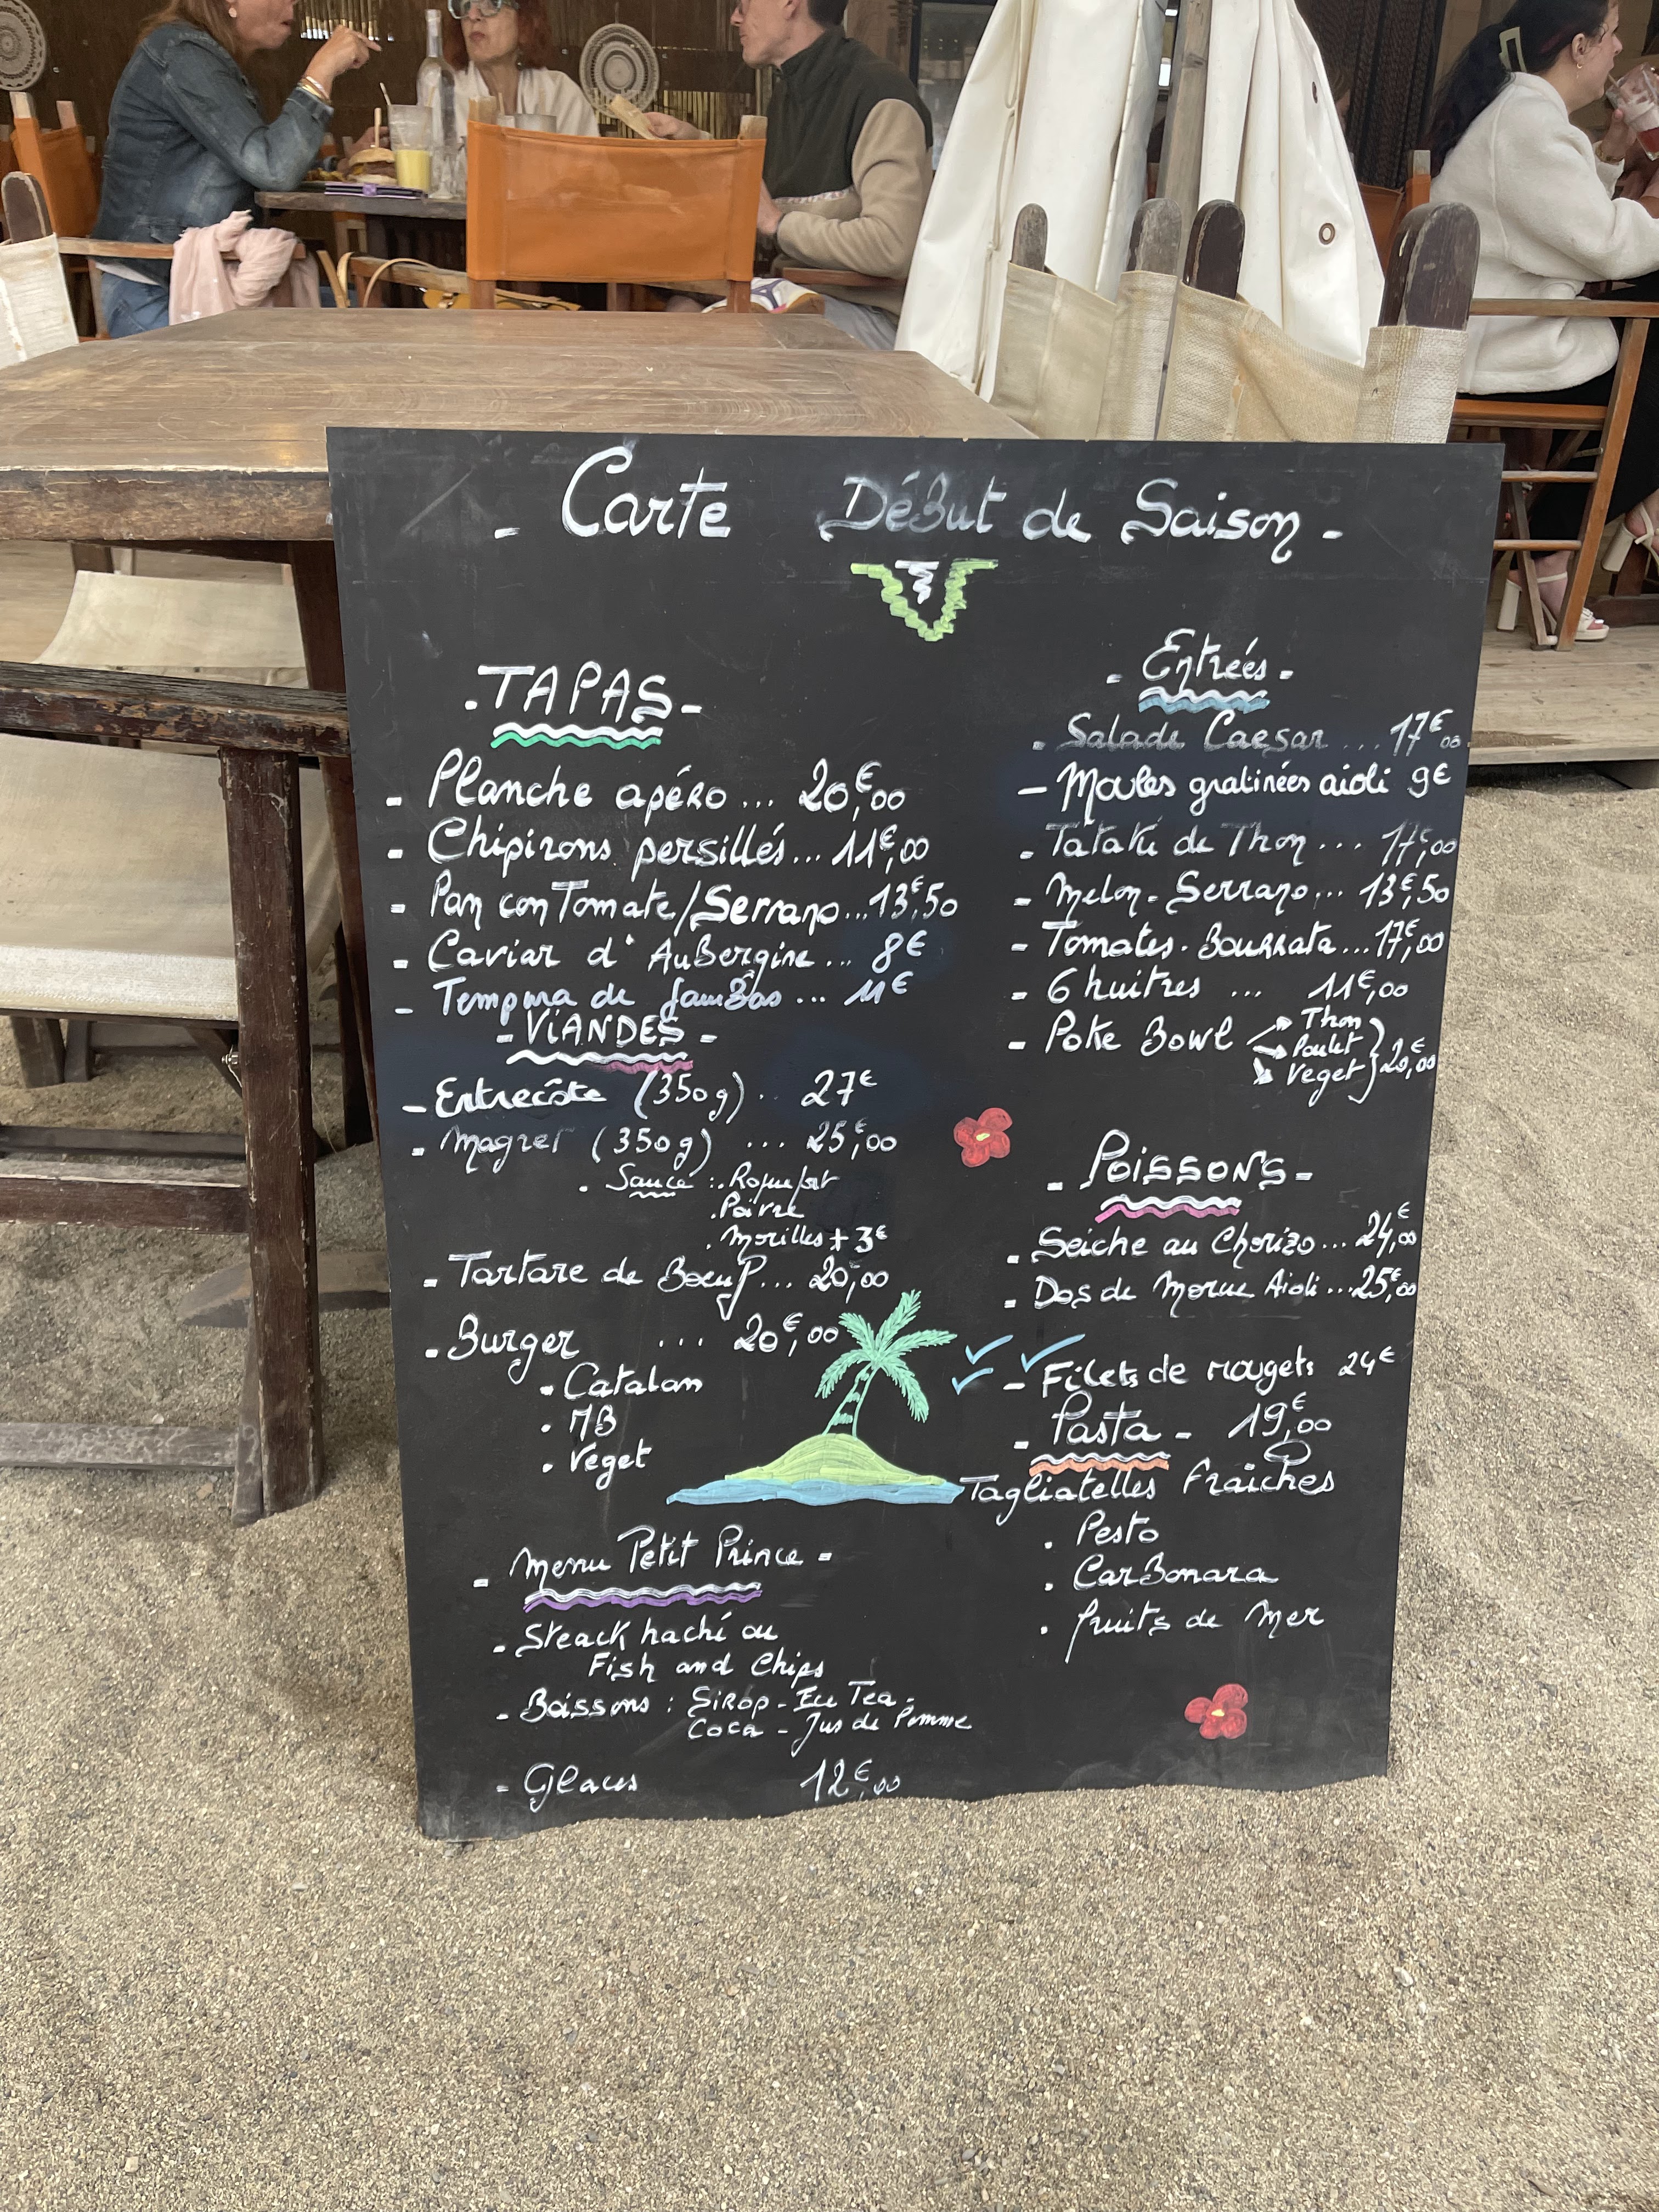 - Carte Début de Saison -
- TAPAS -
- Planche apéro ... 20€,00
- Chipirons persillés ... 11€,00
- Pan con Tomate/Serrano ... 13€,50
- Caviar d'Aubergine ... 8€
- Tempura de Gambas ... 11€
- VIANDES -
- Entrecôte (350g) .. 27€
- Magret (350g) ... 25€,00
. Sauce : . Roquefort
. Poivre
. Morilles + 3€
- Tartare de Boeuf ... 20,00
- Burger ... 20€,00
. Catalan
. MB
. Veget
- Menu Petit Prince -
- Steack haché ou
Fish and Chips
- Boissons : Sirop - Ice Tea -
Coca - Jus de Pomme
- Glaces 12€,00
- Entrées -
. Salade Caesar ... 17€,00
- Moules gratinées aioli 9€
. Tataki de Thon ... 17€,00
- Melon - Serrano ... 13€,50
- Tomates - Bourrata ... 17€,00
- 6 huitres ... 11€,00
- Poke Bowl Thon
Poulet 20€,00
Veget
- POISSONS -
- Seiche au Chorizo ... 24€,00
- Dos de Morue Aioli ... 25€,00
- Filets de rougets 24€
- Pasta - 19€,00
Tagliatelles fraîches
. Pesto
. Carbonara
. fruits de Mer